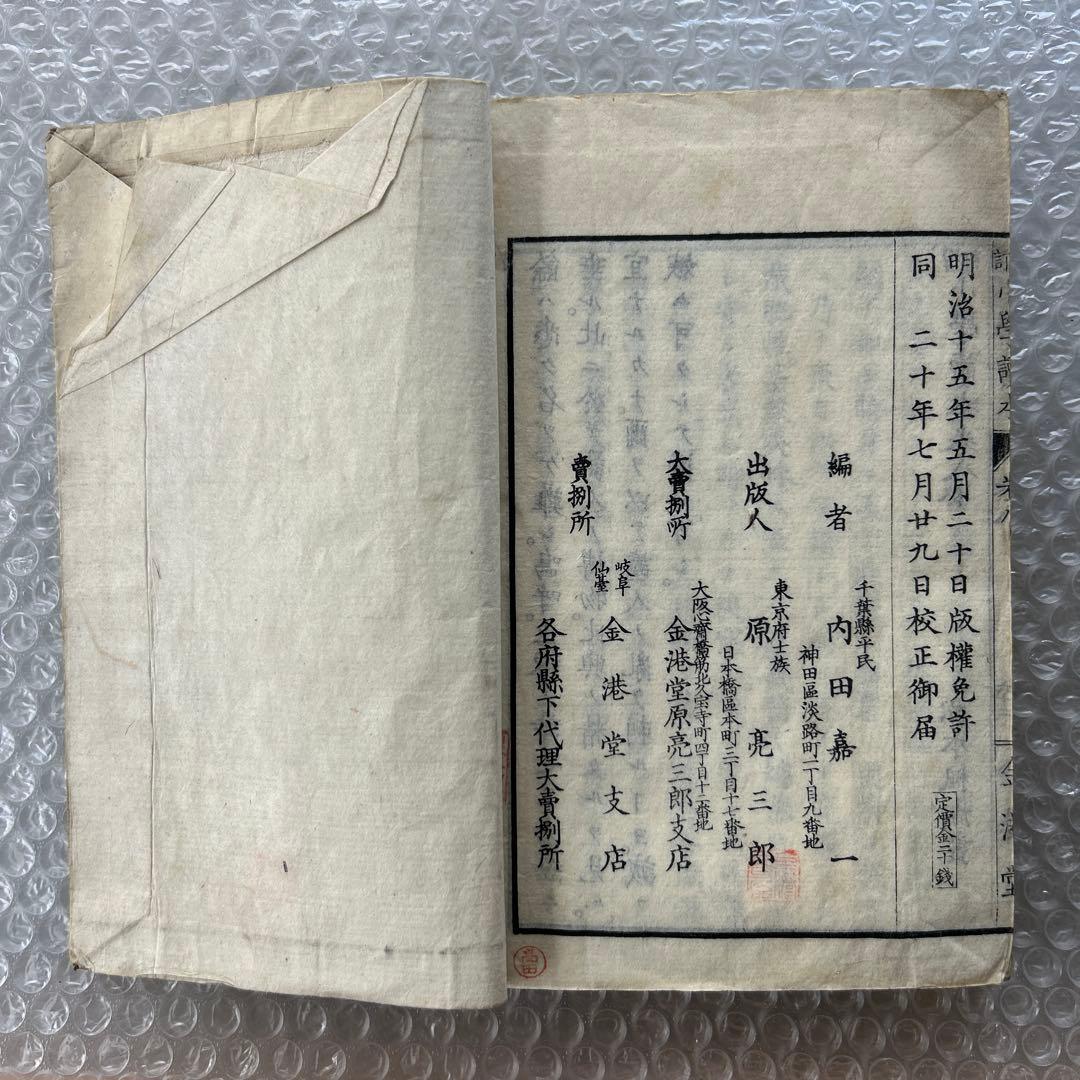 明治十五年五月二十日版權免許
同　二十年七月廿九日校正御届
定價金二十錢
編者
千葉縣平民
内田嘉一
神田區淡路町二丁目九番地
出版人
東京府士族
原亮三郎
日本橋區本町三丁目十七番地
大賣捌所
大阪心齋橋筋北久宝寺町四丁目十二番地
金港堂原亮三郎支店
賣捌所
岐阜
仙臺
金港堂支店
各府縣下代理大賣捌所
金港堂
高田